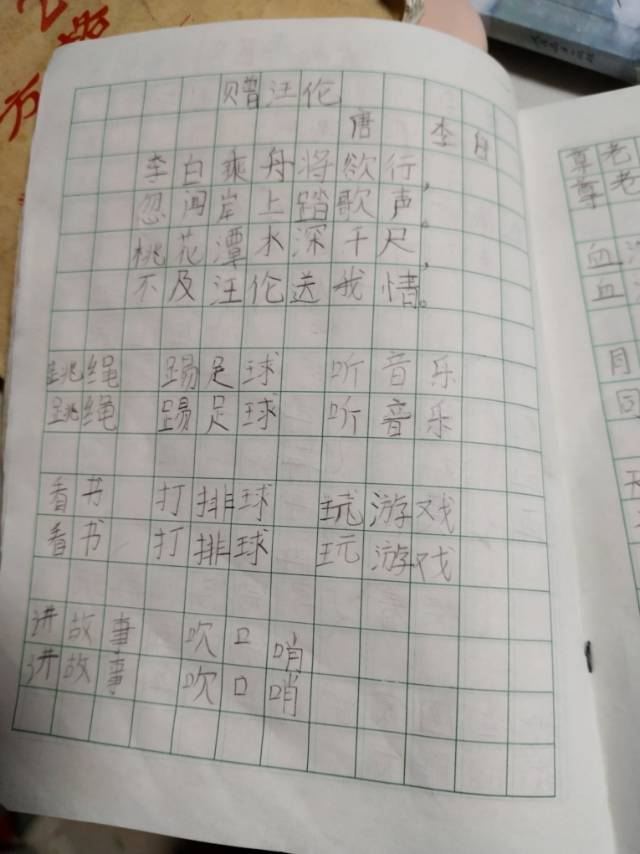 赠汪伦
唐 李白
李白乘舟将欲行，
忽闻岸上踏歌声。
桃花潭水深千尺，
不及汪伦送我情。
跳绳 踢足球 听音乐
跳绳 踢足球 听音乐
看书 打排球 玩游戏
看书 打排球 玩游戏
讲故事 吹口哨
讲故事 吹口哨
尊老
尊老
血
血
月